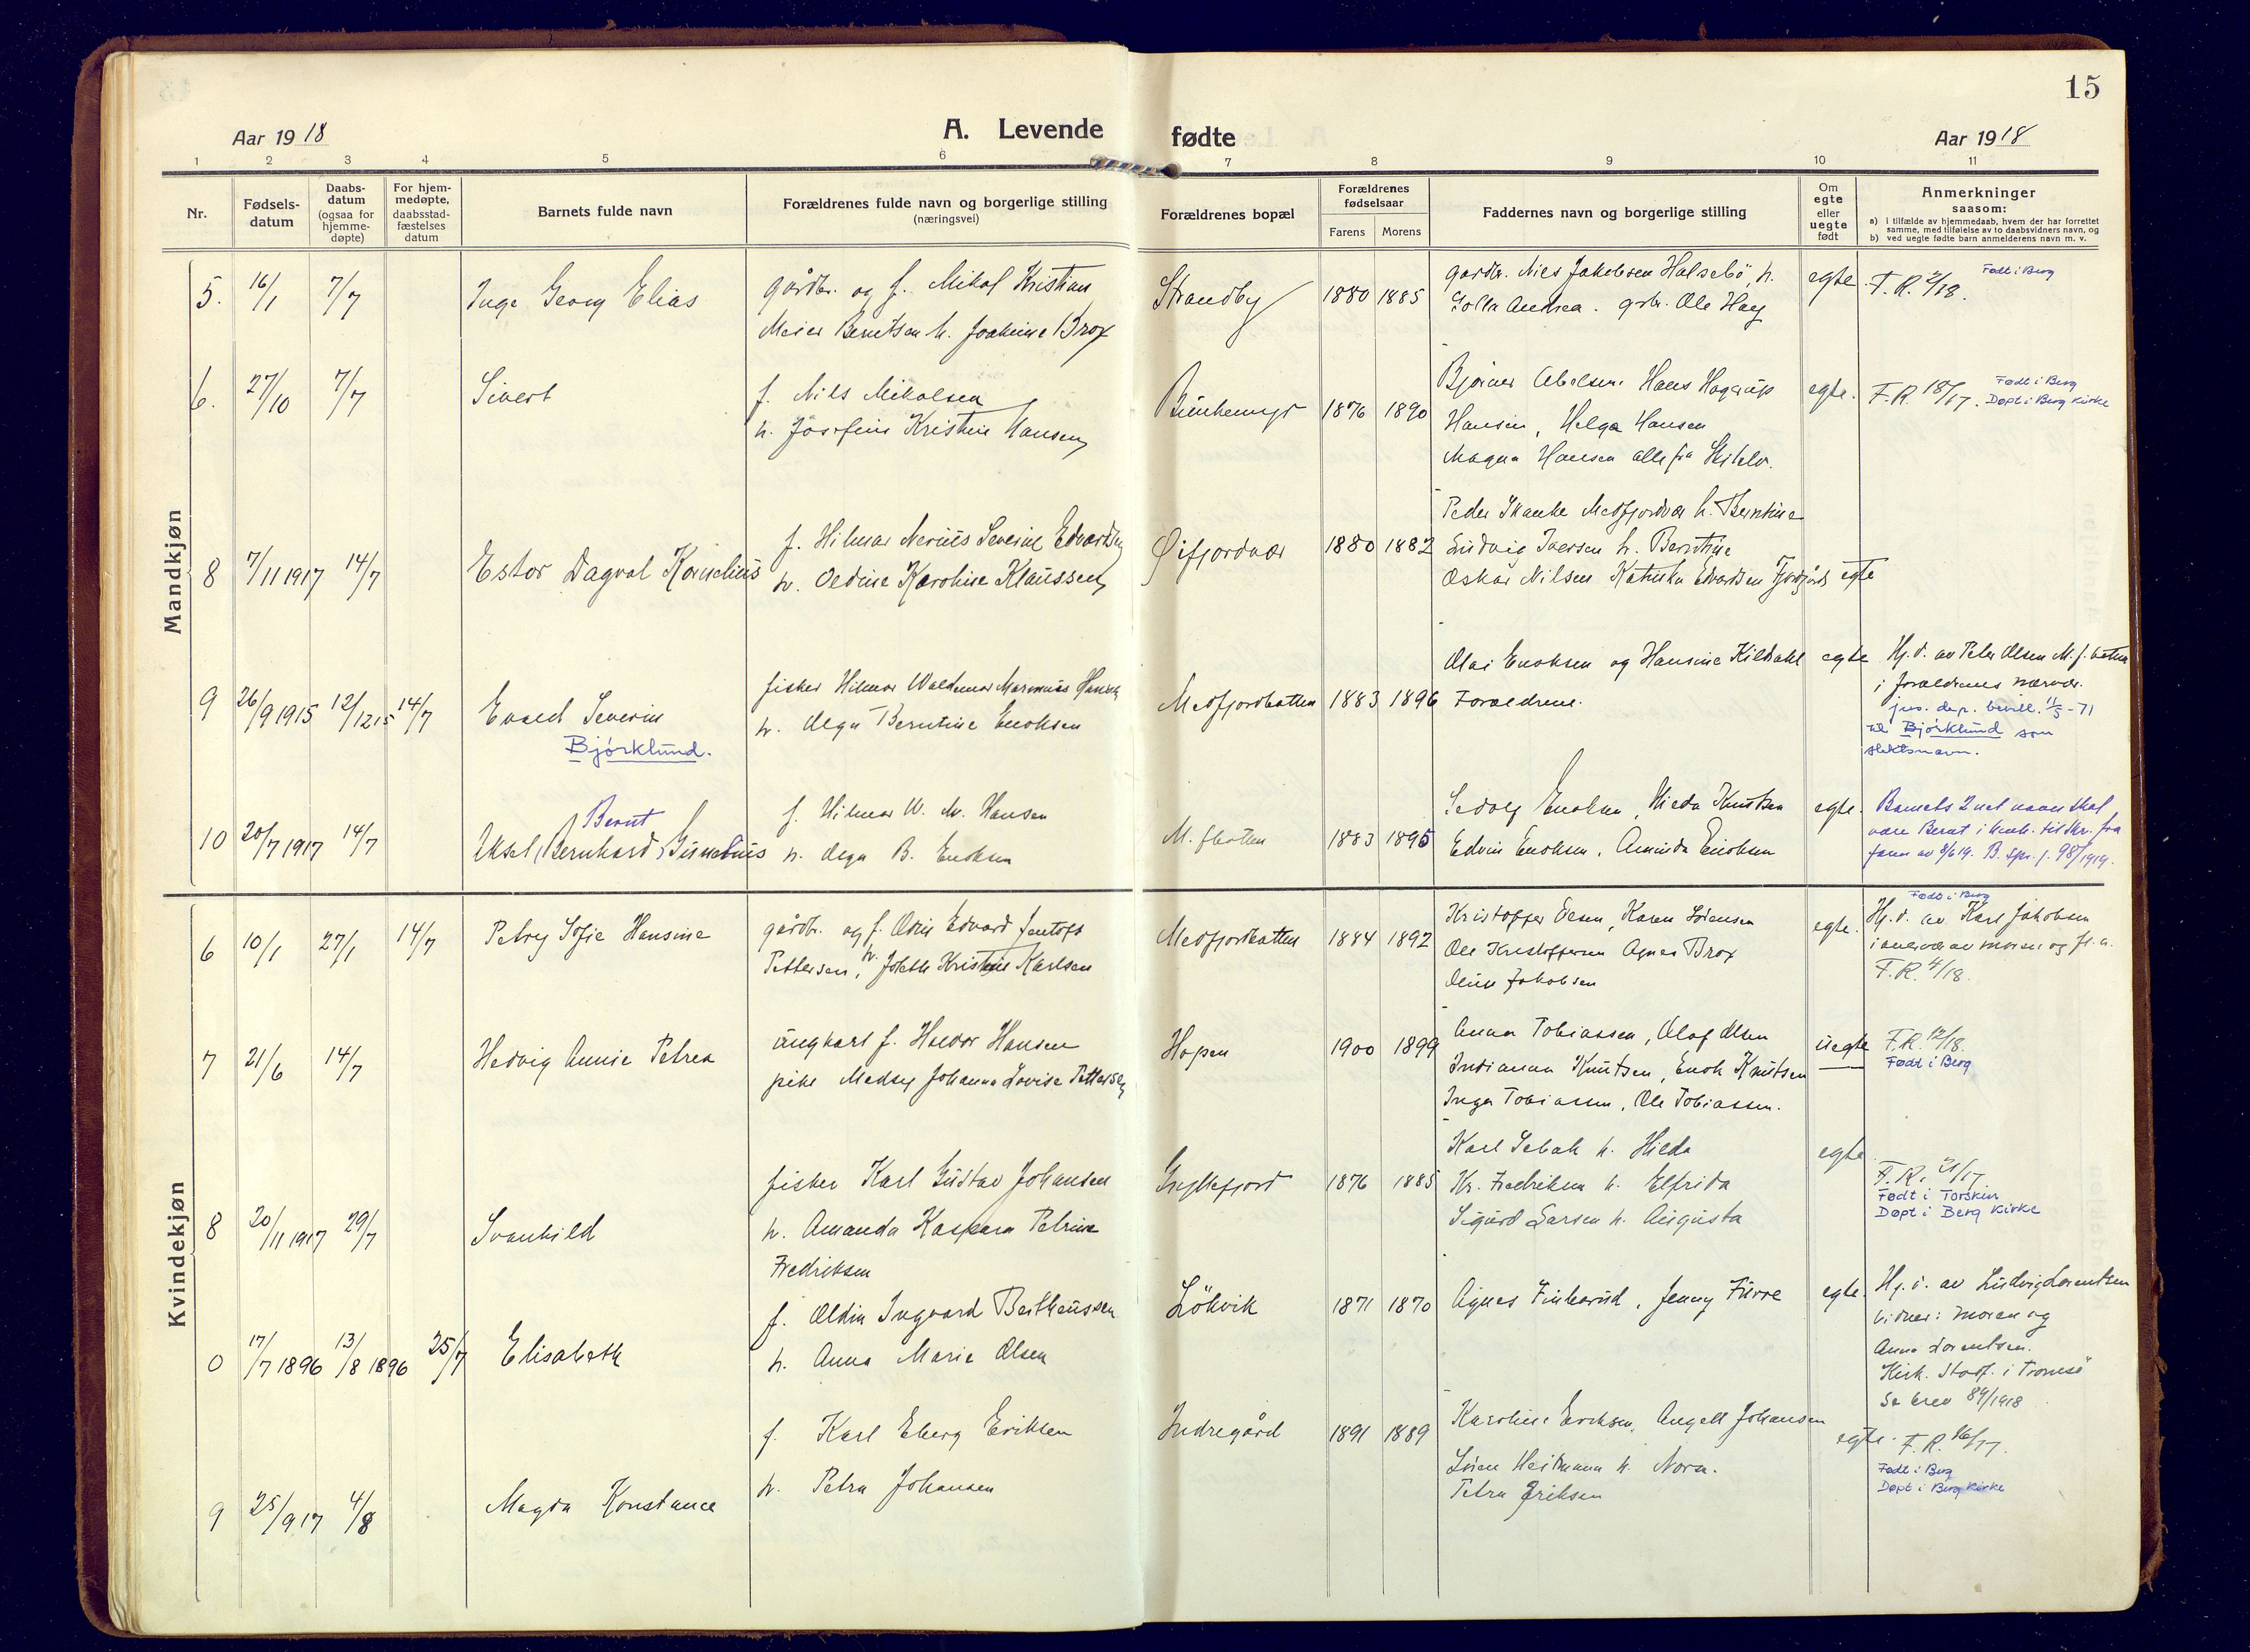 15
Aar 1918
A. Levende fødte
Aar 1918
1 2 3 4 5 6 7 8 9 10 11
Nr.
Fødsels-
datum
Daabs-
datum
(ogsaa for
hjemme-
døpte)
For hjem-
medøpte,
daabsstad-
fæstelses
datum
Barnets fulde navn
Forældrenes fulde navn og borgerlige stilling
(næringsvei)
Forældrenes bopæl
Forældrenes
fødselsaar
Farens Morens
Faddernes navn og borgerlige stilling
Om
egte
eller
uegte
født
Anmerkninger
saasom:
a) i tilfælde av hjemmedaab, hvem der har forrettet
samme, med tilføielse av to daabsvidners navn, og
b) ved uegte fødte barn anmelderens navn m. v.
Mandkjøn
5. 16/1 7/7
Inge Georg Elias
gårdbr. og f. Mikal Kristian
Meier Berntsen h. Joakime Brox
Strandby
1880 1885
gardbr. Nies Jakobsen Halsebö, h.
Andrea. grbr. Ole Haug
egte
F.R. 2/18.
Født i Berg
6. 27/10 7/7
Sivert
f. Nils Mikalsen
h. Josefine Kristine Hansen
1876 1890
Bjørner Abelsen. Hans Hagerup
Hansen, Helga Hansen
Magna Hansen alle fra
egte.
F.R. 18/17.
Født i Berg
Døpt i Berg kirke
8 7/11 1917 14/7
Estor Dagval Kornelius
f. Hilmar Nerius Severin Edvardsen
h. Oldine Karoline Klaussen
Øifjordvær
1880 1882
Peder Skanke Medfjordvær h. Berntine
Ludvig Iversen h. Berntine
Oskar Nilsen Edvardsen
egte
9 26/9 1915 12/12 15 14/7
Evald Severin
Bjørklund.
fisker Hilmar Waldemar Marenius Hansen
h. Olga Berntine Enoksen
Medfjordbotten
1883 1896
Olai Enoksen og Hansine Kildahl
Forældrene.
egte
Hj. d. av Peter Olsen M. f. botten
i forældrenes nærvær.
jus. dep. bevill. 11/5-71
til Bjørklund som
slektsnavn.
10 20/7 1917 14/7
Bernt
Aksel (Bernhard) Gunelius
f. Hilmar W. M. Hansen
h. Olga B. Enoksen
M. fbotten
1883 1895
Enoksen, Hilda Knutsen
Edvin Enoksen, Aminda Enoksen
egte.
Barnets 2net navn skal
være Bernt i henh. til skr. fra
faren av 8/6 19. B. spr. j. 98/1919.
Kvindekjøn
6 10/1 27/1 14/7
Petry Sofie Hansine
gårdbr. og f. Odin Edvard Jentoft
Pettersen, h. Jolette Kristine Karlsen
Medfjordbotten
1884 1892
Kristoffer Olsen, Karen Sørensen
Ole Kristoffersen Agnes Brox
Oline Jakobsen
egte.
Født i Berg
Hj. d. av Karl Jakobsen
i nærvær av moren og fl. a.
F.R. 4/18.
7 21/6 14/7
Hedvig Annie Petrea
ungkarl f. Halvor Hansen
pike Madsy Johanna Lovise Pettersen
Hopen
1900 1899
Anna Tobiassen, Olaf Olsen
Indianna Knutsen, Enok Knutsen
Inga Tobiassen, Ole Tobiassen.
uegte
F.R. 12/18.
Født i Berg
8 20/11 1917 29/7
Svanhild
fisker Karl Gustav Johansen
h. Amanda Kaspara Petrine
Fredriksen
Gryllefjord
1876 1885
Karl Sebak h. Hilda
Kr. Fredriksen h. Elfrida
Sigurd Larsen h. Augusta
egte
F.R. 21/17
Født i Torsken
Døpt i Berg kirke
0 17/7 1896 13/8 1896 25/7
Elisabeth
f. Oldin Ingvard Bertheussen
h. Anna Marie Olsen
Lökvik
1871 1870
Agnes Finbørud, Jenny Furre
egte.
Hj. d. av Ludvig Lorentsen
vidner: moren og
Anna Lorentsen.
Kirk. Stadf. i Tromsö
Se brev 84/1918
9 25/9 17 4/8
Magda Konstance
f. Karl Eberg Eriksen
h. Petra Johansen
Indregård
1891 1889
Karoline Eriksen, Angell Johansen
Sören Heitmann h. Nora.
Petra Eriksen
egte.
F.R. 16/17.
Født i Berg
Døpt i Berg kirke